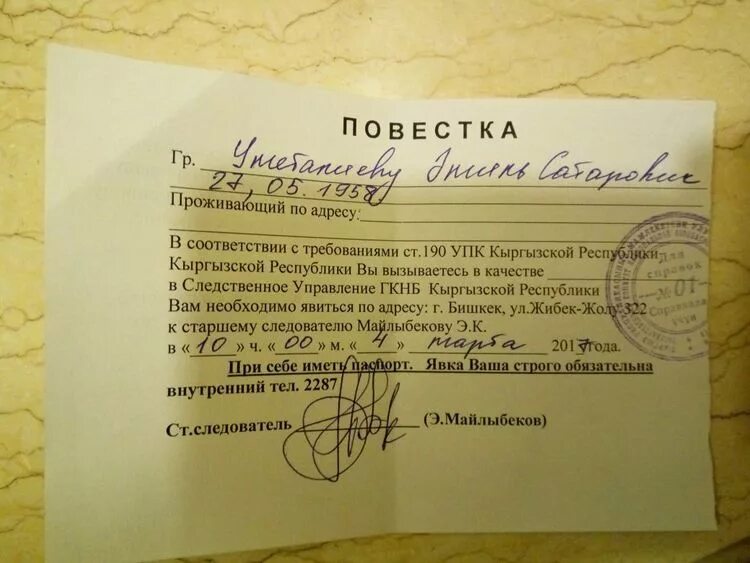 ПОВЕСТКА
Гр. Уметалиеву Эмиль Сатарович
27, 05. 1958
Проживающий по адресу:
В соответствии с требованиями ст.190 УПК Кыргызской Республики
Кыргызской Республики Вы вызываетесь в качестве
в Следственное Управление ГКНБ Кыргызской Республики
Вам необходимо явиться по адресу: г. Бишкек, ул.Жибек-Жолу 322
к старшему следователю Майлыбекову Э.К.
в «10» ч. «00» м. «4» марта 2017года.
При себе иметь паспорт. Явка Ваша строго обязательна
внутренний тел. 2287
Ст.следователь (Э.Майлыбеков)
Для
справок
№01